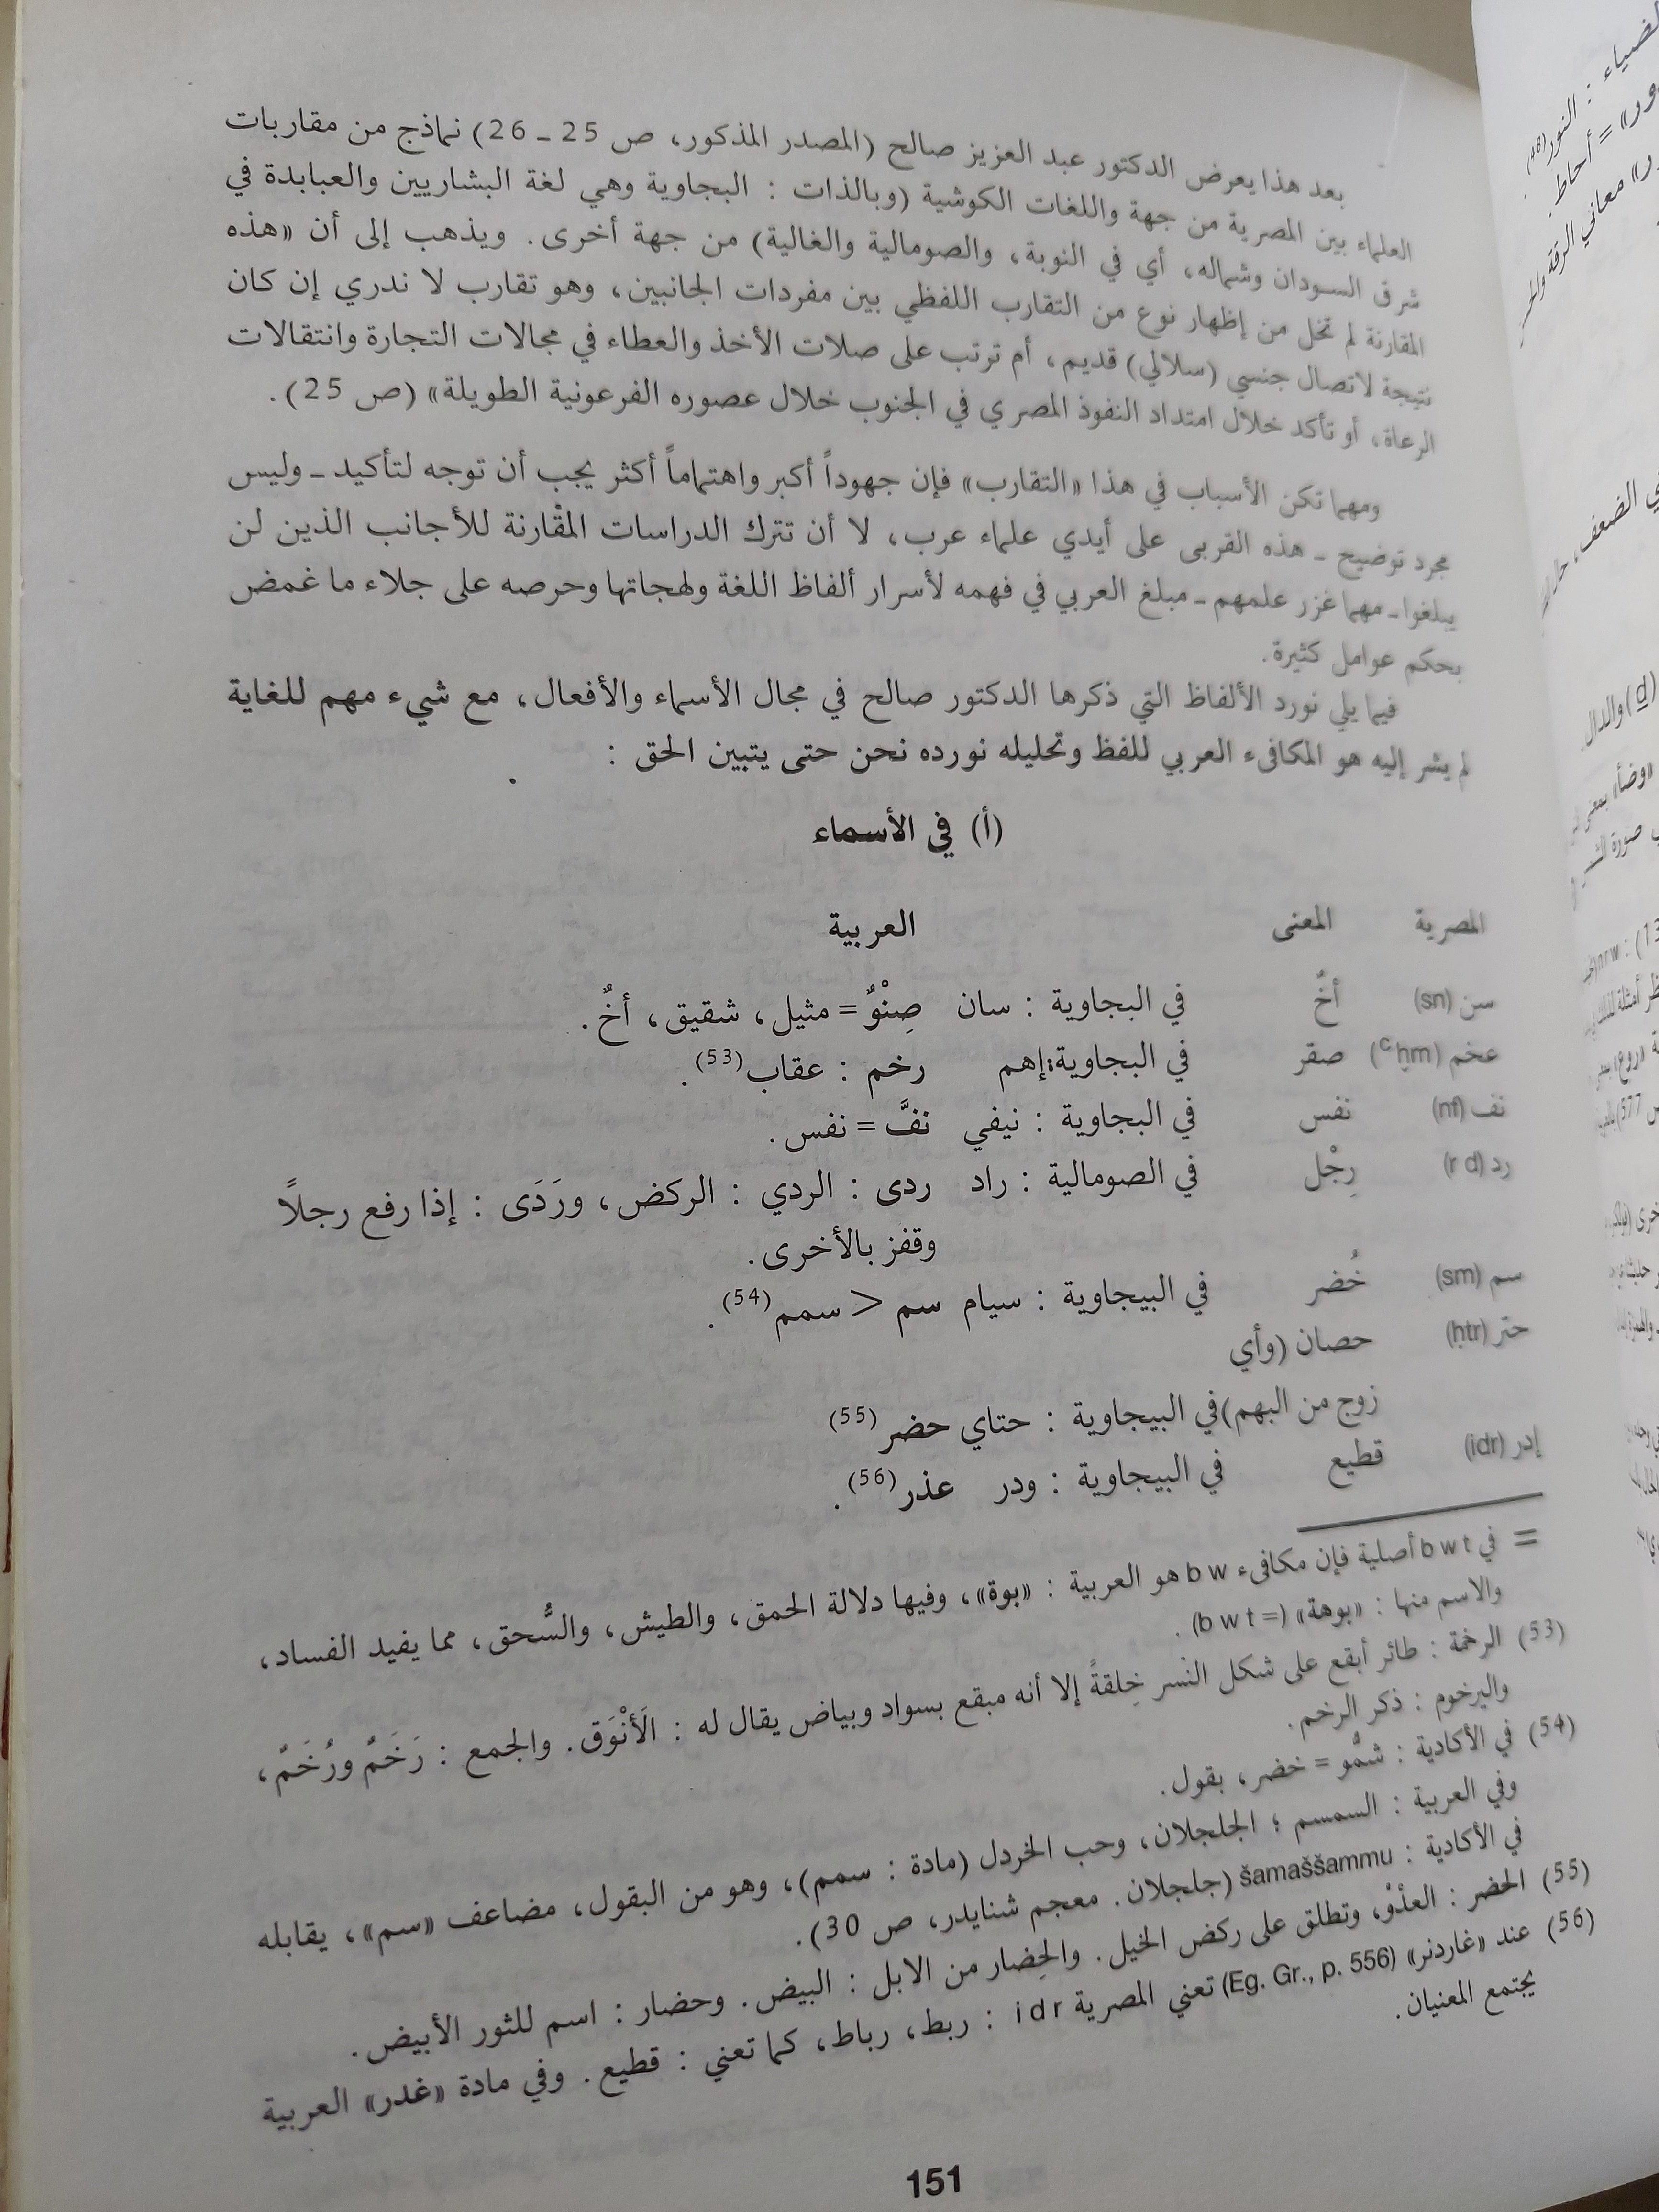 بعد هذا يعرض الدكتور عبد العزيز صالح (المصدر المذكور، ص 25 ـ 26) نماذج من مقاربات
العلماء بين المصرية من جهة واللغات الكوشية (وبالذات : البجاوية وهي لغة البشاريين والعبابدة في
شرق السودان وشماله، أي في النوبة، والصومالية والغالية) من جهة أخرى. ويذهب إلى أن «هذه
المقارنة لم تخل من إظهار نوع من التقارب اللفظي بين مفردات الجانبين، وهو تقارب لا ندري إن كان
نتيجة لاتصال جنسي (سلالي) قديم، أم ترتب على صلات الأخذ والعطاء في مجالات التجارة وانتقالات
الرعاة، أو تأكد خلال امتداد النفوذ المصري في الجنوب خلال عصوره الفرعونية الطويلة» (ص 25).
ومهما تكن الأسباب في هذا «التقارب» فإن جهوداً أكبر واهتماماً أكثر يجب أن توجه لتأكيد ـ وليس
مجرد توضيح ـ هذه القربى على أيدي علماء عرب، لا أن تترك الدراسات المقْارنة للأجانب الذين لن
يبلغوا ـ مهما غزر علمهم ـ مبلغ العربي في فهمه لأسرار ألفاظ اللغة ولهجاتها وحرصه على جلاء ما غمض
بحكم عوامل كثيرة.
فيما يلي نورد الألفاظ التي ذكرها الدكتور صالح في مجال الأسماء والأفعال، مع شيء مهم للغاية
لم يشر إليه هو المكافىء العربي للفظ وتحليله نورده نحن حتى يتبين الحق :
(أ) في الأسماء
المصرية المعنى العربية
سن (sn) أخٌ في البجاوية : سان صِنْوٌ = مثيل، شقيق، أخٌ.
عخم (ꜥḫm) صقر في البجاوية:إهم رخم : عقاب(53).
نف (nf) نفس في البجاوية : نيفي نفَّ = نفس.
رد (r d) رِجْل في الصومالية : راد ردى : الردي : الركض، ورَدَى : إذا رفع رجلاً
وقفز بالأخرى.
سم (sm) خُضر في البيجاوية : سيام سم > سمم(54).
حتر (ḥtr) حصان (وأي
زوج من البهم) في البيجاوية : حتاي حضر(55)
إدر (idr) قطيع في البيجاوية : ودر عذر(56).
= في b w t أصلية فإن مكافىء b w هو العربية : «بوة»، وفيها دلالة الحمق، والطيش، والسُّحق، مما يفيد الفساد،
والاسم منها : «بوهة» (= b w t).
(53) الرخمة : طائر أبقع على شكل النسر خِلقةً إلا أنه مبقع بسواد وبياض يقال له : الَأنْوَق. والجمع : رَخَمٌ ورُخَمٌ،
واليرخوم : ذكر الرخم.
(54) في الأكادية : شمُّو = خضر، بقول.
وفي العربية : السمسم ؛ الجلجلان، وحب الخردل (مادة : سمم)، وهو من البقول، مضاعف «سم»، يقابله
في الأكادية : šamaššammu (جلجلان. معجم شنايدر، ص 30).
(55) الحضر : العدْوْ، وتطلق على ركض الخيل. والحِضار من الابل : البيض. وحضار : اسم للثور الأبيض.
(56) عند «غاردنر» (Eg. Gr., p. 556) تعني المصرية i d r : ربط، رباط، كما تعني : قطيع. وفي مادة «غدر» العربية
يجتمع المعنيان.
151